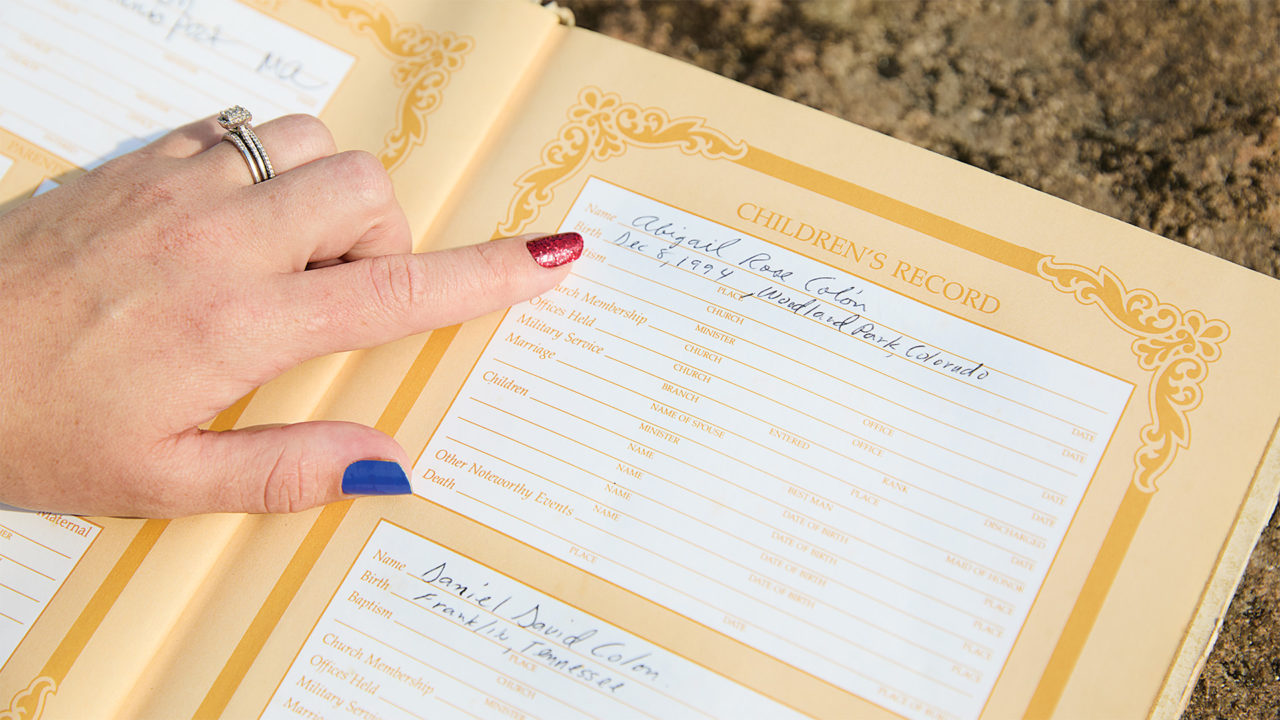 MA
CHILDREN'S RECORD
Name Abigail Rose Colón
Birth Dec 8, 1994, Woodland Park, Colorado
PLACE DATE
CHURCH DATE
Church Membership
MINISTER
Offices Held
CHURCH OFFICE DATE
Military Service
CHURCH OFFICE DATE
BRANCH RANK
Marriage
ENTERED DISCHARGED
NAME OF SPOUSE PLACE DATE
MINISTER BEST MAN MAID OF HONOR
Children
NAME DATE OF BIRTH PLACE
NAME DATE OF BIRTH PLACE
NAME DATE OF BIRTH PLACE
NAME DATE OF BIRTH PLACE
Other Noteworthy Events
Death
PLACE DATE PLACE OF BURIAL
Maternal
Name Daniel David Colon
Birth Franklin, Tennessee
PLACE
Baptism
CHURCH
MINISTER
Church Membership
Offices Held
Military Service
Marriage